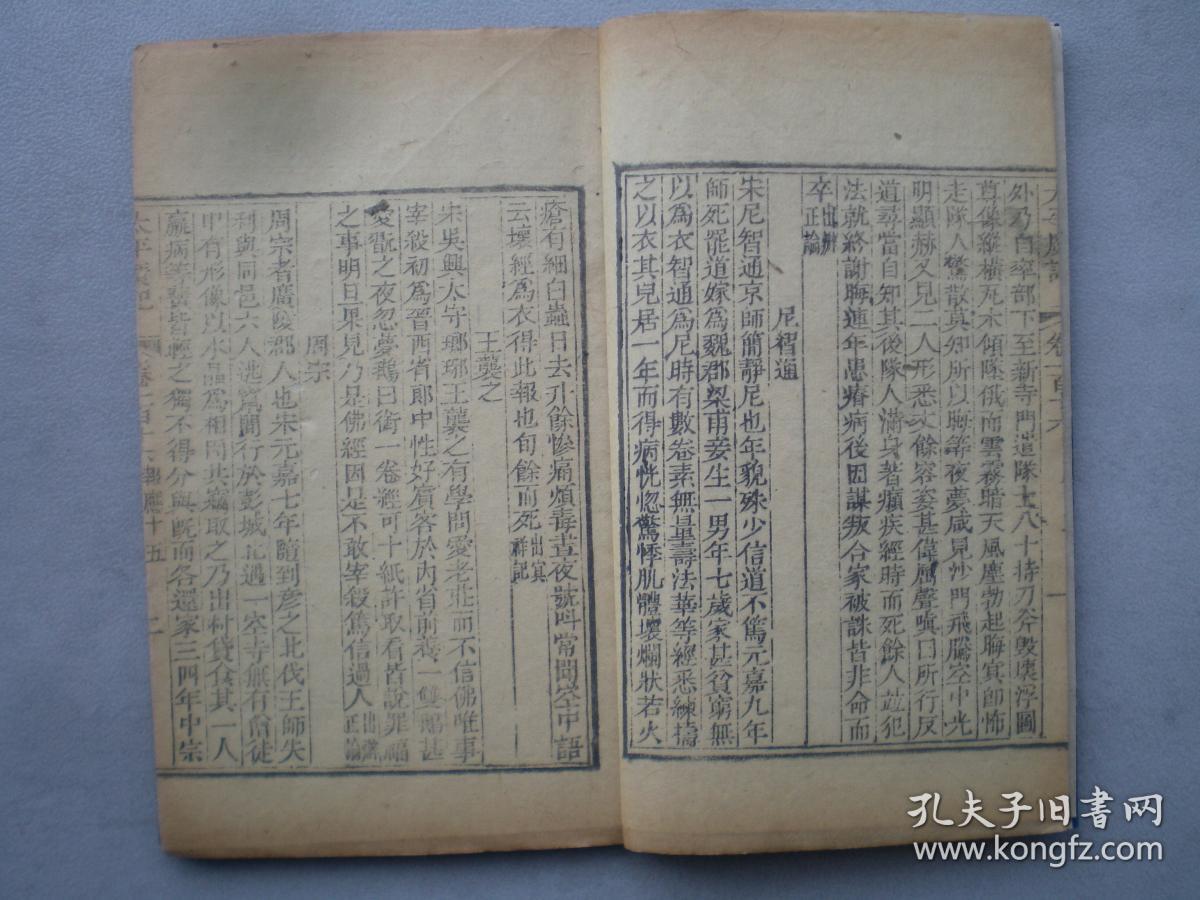 外乃自率部下至新寺門遣隊士八十持刀斧毀壞浮圖
尊像縱橫瓦木傾隊俄而雲霧暗天風塵勃起晦寘即怖
走隊人驚散莫知所以晦等夜夢咸見沙門飛騰空中光
明顯赫又見二人形悉丈餘容姿甚偉厲聲嗔曰所行反
道尋當自知其後隊人滿身著癩疾經時而死餘人並犯
法就終謝晦連年患瘠病後因謀叛合家被誅皆非命而
卒出辨正論
尼智通
朱尼智通京師簡靜尼也年貌殊少信道不篤元嘉九年
師死罷道嫁爲魏郡梁甫妾生一男年七歲家甚貧窮無
以爲衣智通爲尼時有數卷素無量壽法華等經悉練擣
之以衣其兒居一年而得病恍惚驚悸肌體壞爛狀若火
瘡有細白蟲日去升餘慘痛煩毒晝夜號叫常聞空中語
云壞經爲衣得此報也旬餘而死出冥祥記
王襲之
宋吳興太守瑯琊王襲之有學問愛老莊而不信佛唯事
宰殺初爲晉西省郎中性好賓客於內省前養一雙鵝甚
愛翫之夜忽夢鵝口銜一卷經可十紙許取看皆說罪福
之事明旦果見乃是佛經因是不敢宰殺篤信過人出辨正論
周宗
周宗者廣陵郡人也宋元嘉七年隨到彥之北伐王師失
利與同邑六人逃竄間行於彭城北遇一空寺無有僧徒
中有形像以水晶爲相因共竊取之乃出村貸食其一人
羸病等輩皆輕之獨不得分與既而各還家三四年中宗
太平廣記 卷一百十六 報應十五 二
孔夫子旧书网
www.kongfz.com